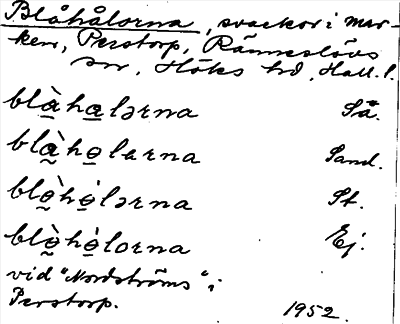 Blåhålorna, svackor i mar-
ken, Perstorp, Ränneslövs
sn, Höks hd, Hall. l.
blàhalərna Så.
blàholərna Sand.
blòhólərna St.
blòhólorna Ej.
vid "Nordströms" i
Perstorp. 1952.